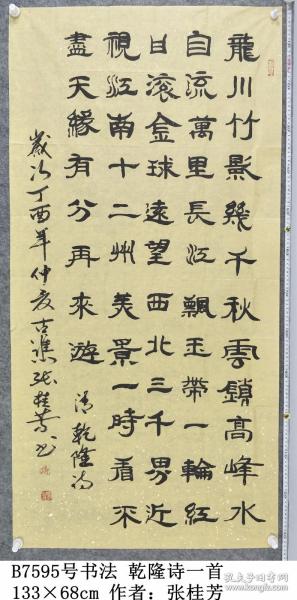 龍川竹影幾千秋雲鎖高峰水
自流萬里長江飄玉帶一輪紅
日滾金球遠望西北三千界近
視江南十二州美景一時看不
盡天緣有分再來遊
清乾隆詩
歲次丁酉年仲夏古譙張桂芳书
B7595号书法 乾隆诗一首
133×68cm 作者：张桂芳